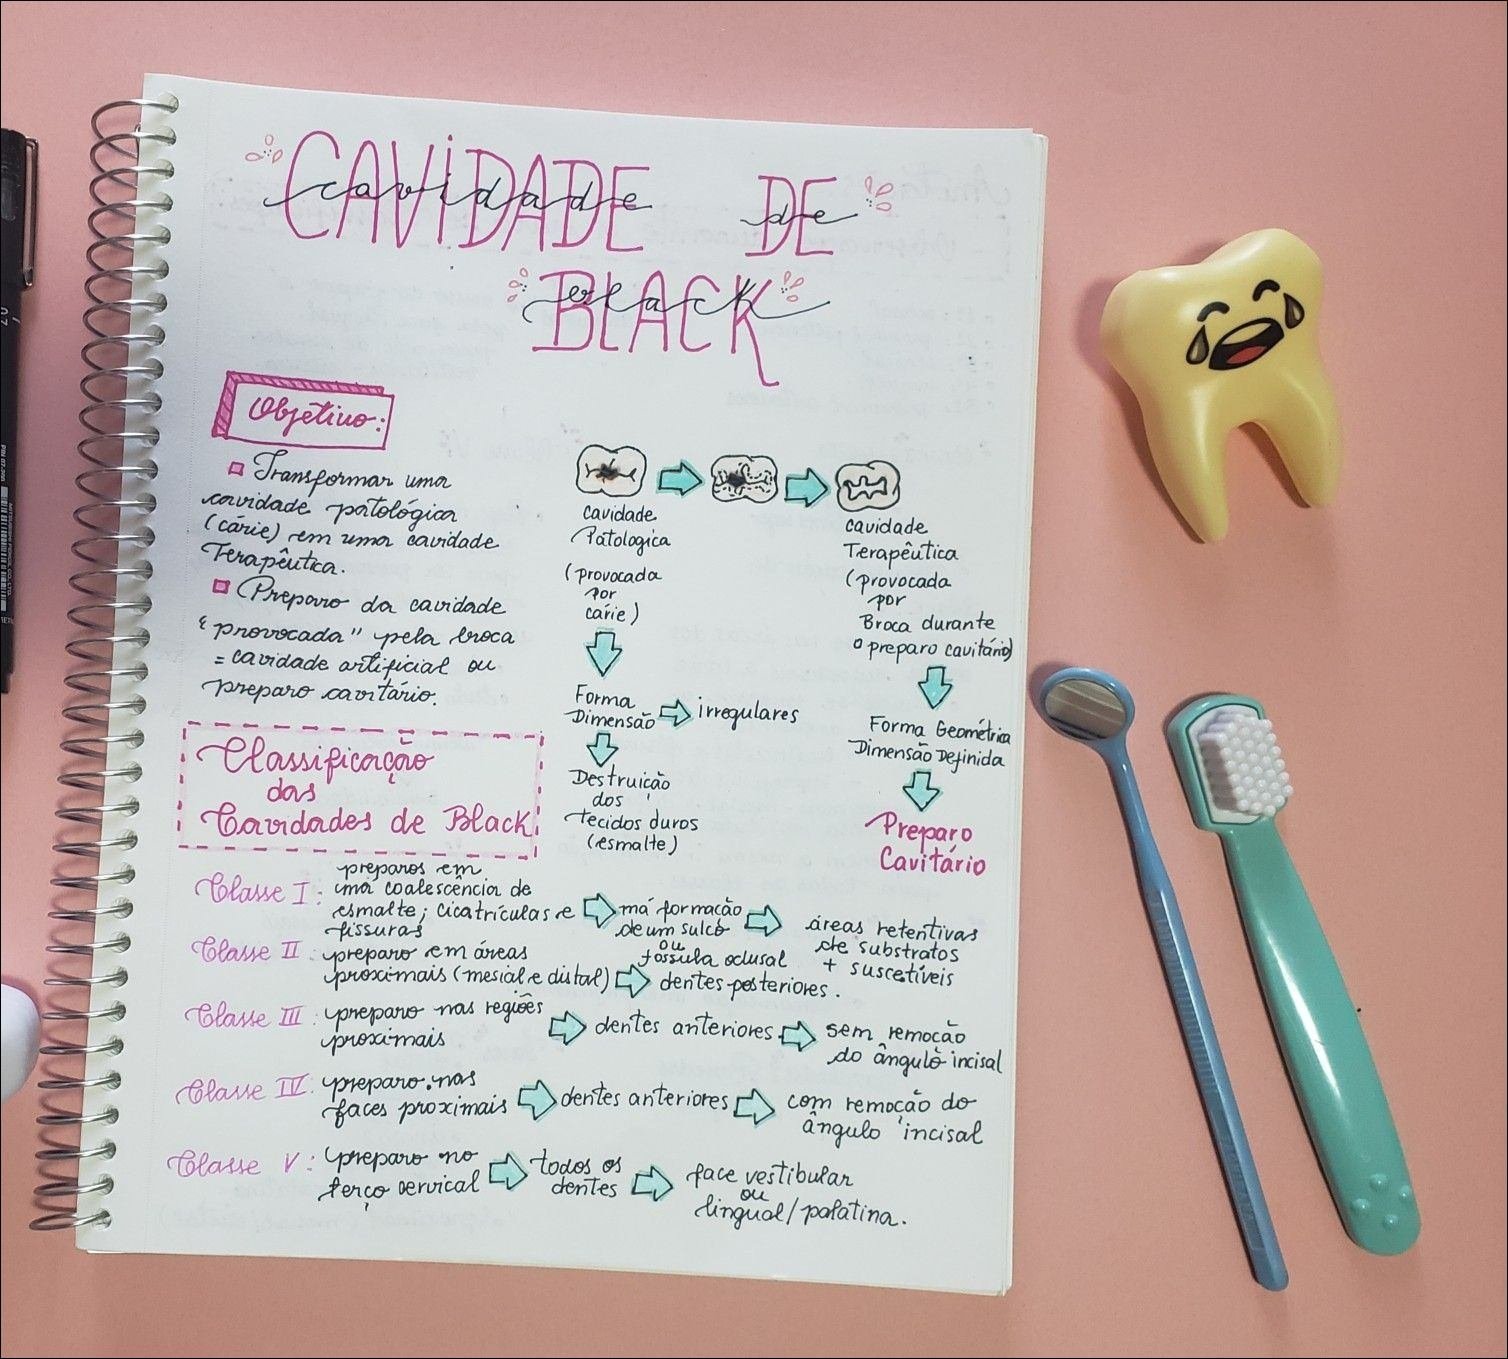 CAVIDADE DE
cavidade de
BLACK
Black
Objetivo:
Transformar uma
cavidade patológica
(cárie) em uma cavidade
Terapêutica.
Preparo da cavidade
"provocada" pela broca
= cavidade artificial ou
preparo cavitário.
cavidade
Patologica
(provocada
por
cárie)
Forma
Dimensão
irregulares
Destruição
dos
tecidos duros
(esmalte)
cavidade
Terapêutica
(provocada
por
Broca durante
o preparo cavitário)
Forma Geométrica
Dimensão Definida
Preparo
Cavitário
Classificação
das
Cavidades de Black
Classe I: preparos em
uma coalescência de
esmalte; cicatrículas e
fissuras
má formação
de um sulco
ou
fóssula oclusal
áreas retentivas
de substratos
+ suscetíveis
Classe II: preparo em áreas
proximais (mesial e distal)
dentes posteriores.
Classe III: preparo nas regiões
proximais
dentes anteriores
sem remoção
do ângulo incisal
Classe IV: preparo nas
faces proximais
dentes anteriores
com remoção do
ângulo incisal
Classe V: preparo no
terço cervical
todos os
dentes
face vestibular
ou
lingual/palatina.
0.7